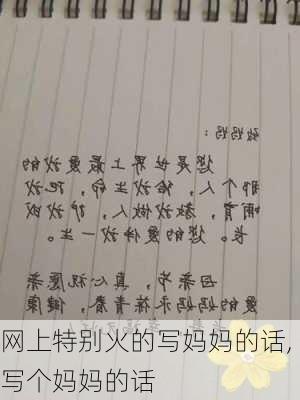 致妈妈：
您是世界上最爱我的
那个人，给我生命，把我
哺育，教我做人，护我成
长。您的爱伴我一生。
母亲节，真心祝愿亲
爱的妈妈永葆青春，健康
网上特别火的写妈妈的话,
写个妈妈的话